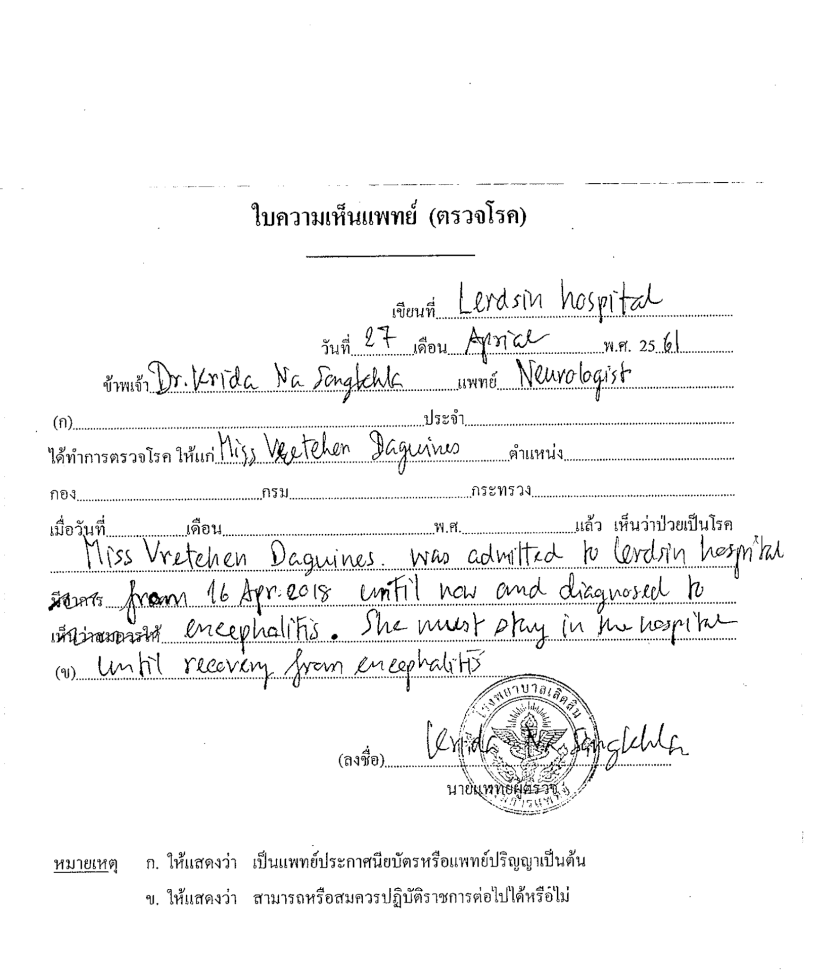 ใบความเห็นแพทย์ (ตรวจโรค)
เขียนที่ Lerdsin hospital
วันที่ 27 เดือน Aprial พ.ศ. 25 61
ข้าพเจ้า Dr. Krida Na Songkhla แพทย์ Neurologist
(ก) ประจำ
ได้ทำการตรวจโรค ให้แก่ Miss Vretchen Daguines ตำแหน่ง
กอง กรม กระทรวง
เมื่อวันที่ เดือน พ.ศ. แล้ว เห็นว่าป่วยเป็นโรค
Miss Vretchen Daguines. was admitted to lerdsin hospital
มีอาการ from 16 Apr. 2018 until now and diagnosed to
เห็นว่าสมควรให้ encephalitis. She must stay in the hospital
(ข) Until recovery from encephalitis
(ลงชื่อ) Krida Na Sangkhla
นายแพทย์ผู้ตรวจ
โรงพยาบาลเลิดสิน
กรมการแพทย์
หมายเหตุ ก. ให้แสดงว่า เป็นแพทย์ประกาศนียบัตรหรือแพทย์ปริญญาเป็นต้น
ข. ให้แสดงว่า สามารถหรือสมควรปฏิบัติราชการต่อไปได้หรือไม่